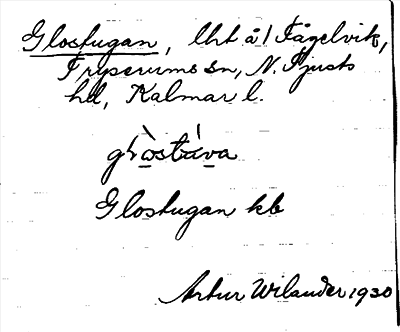 Glostugan, lht å/ Fågelvik,
Fryserums sn, N. Tjusts
hd, Kalmar l.
glòstúva
Glostugan kb
Artur Wilander 1930